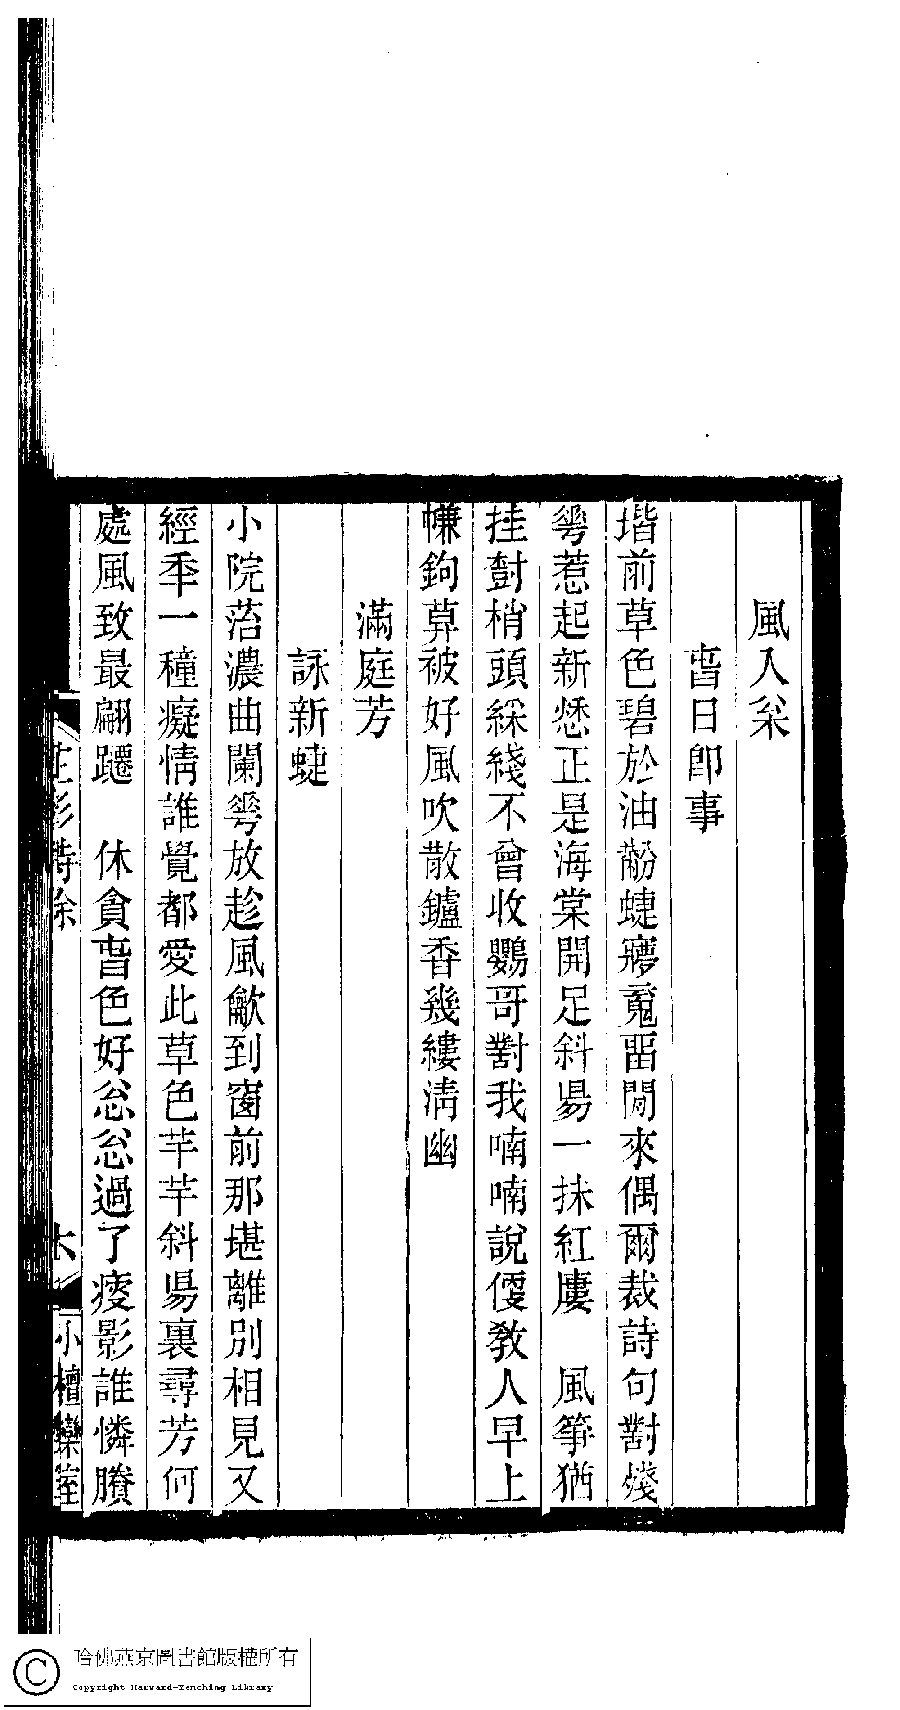 風入枀
旾日卽事
堦前草色碧於油黺蜨㝱䰟畱閒來偶爾裁詩句對殘
�lichen惹起新愁正是海棠開足斜昜一抹紅廔　風箏猶
挂尌梢頭綵綫不曾收鸚哥對我喃喃說偠敎人早上
㡘鉤萛被好風吹散鑪香幾縷淸幽
滿庭芳
詠新蜨
小院萿濃曲闌芌放趁風龡到窗前那堪離別相見又
經秊一種癡情誰覺都愛此草色芊芊斜昜裏尋芳何
處風致最翩躚　休貪旾色好怱怱過了痩影誰憐賸
花影詩餘
六
小檀欒室
哈佛燕京圖書館版權所有
Copyright Harvard-Yenching Library